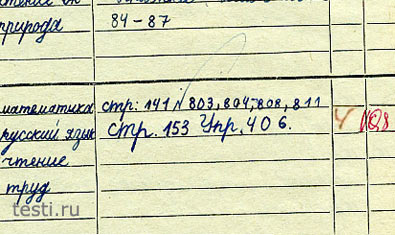 природа 84-87
математика стр: 141 № 803, 804, 808, 811
русский язык стр. 153 Упр. 406. 4
чтение
труд
testi.ru